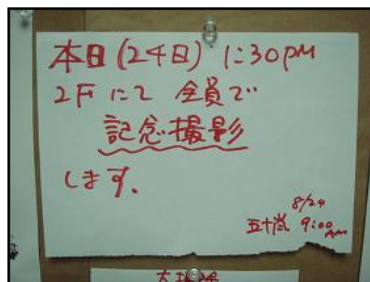 本日(24日) 1:30PM
2Fにて 全員で
記念撮影
します。
8/24
五十嵐 9:00AM